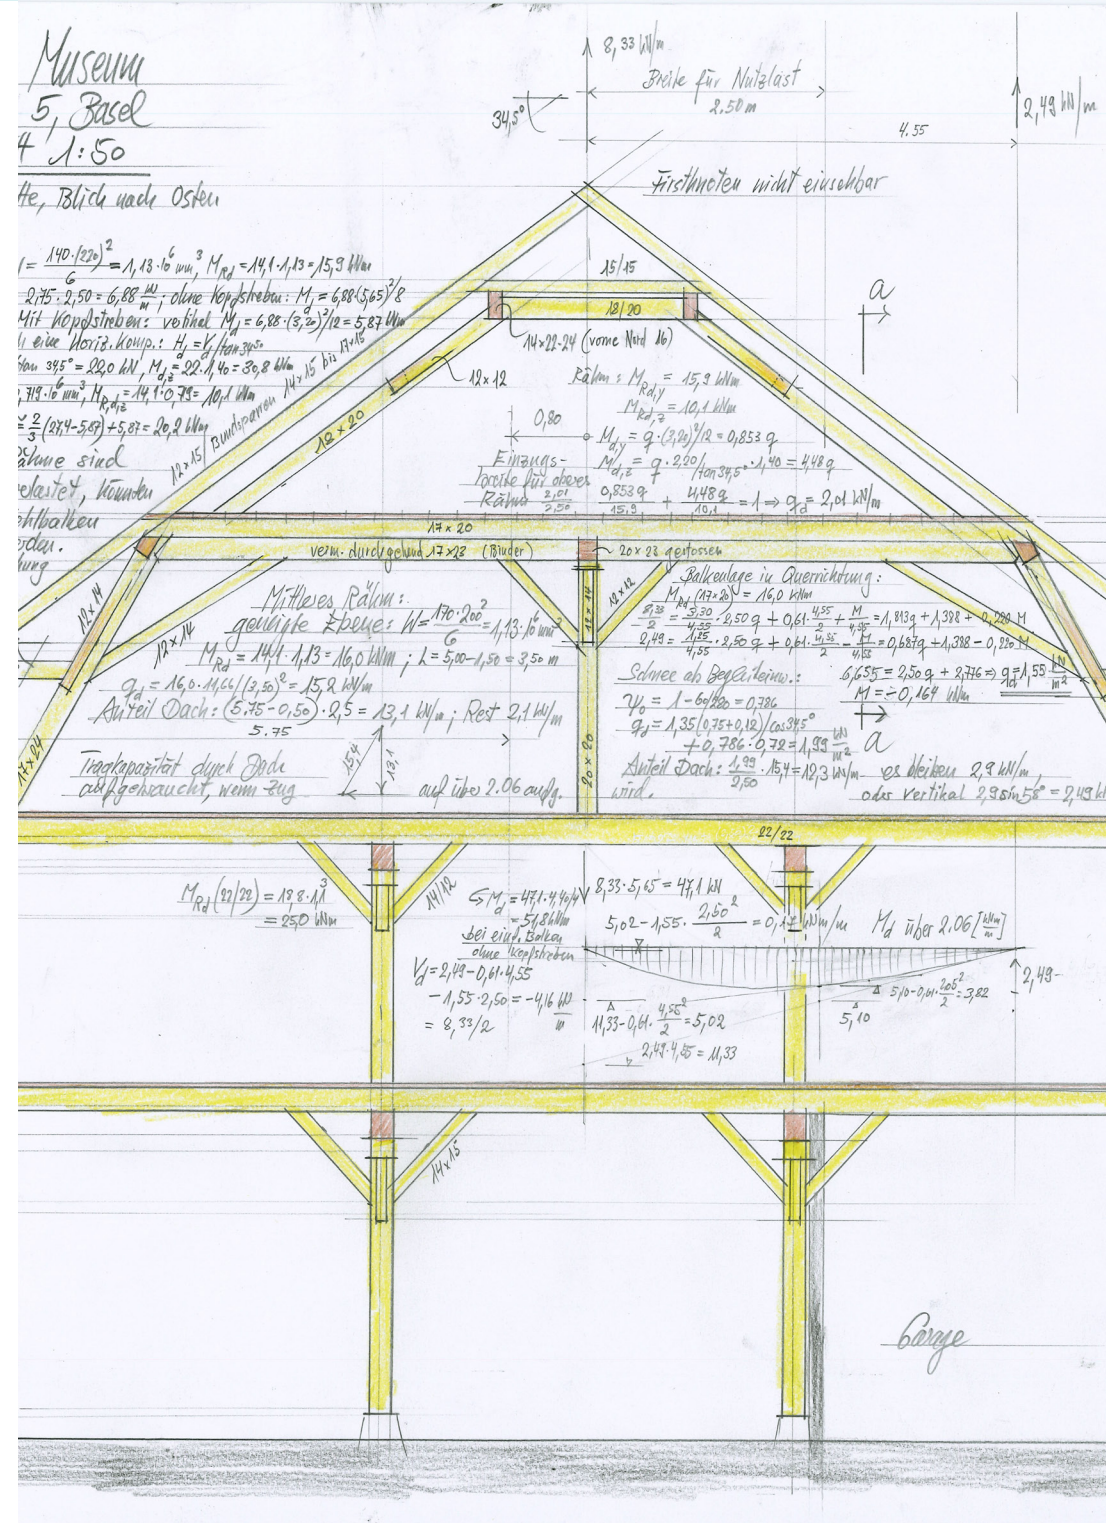 Museum
5, Basel
1:50
Blick nach Osten
= 140·(220)²/6 = 1,13·10⁶ mm³ M_Rd = 14,1·1,13 = 15,9 kNm
2,75·2,50 = 6,88 kN/m ; ohne Kopfstreben: M_d = 6,88(5,65)²/8
Mit Kopfstreben: vertikal M_d = 6,88·(3,20)²/12 = 5,87 kNm
eine Horiz. Komp.: H_d = V_d/tan 34,5°
34,5° = 22,0 kN, M_d,z = 22·1,40 = 30,8 kNm
,719·10⁶ mm³, M_R,d,z = 14,1·0,719 = 10,1 kNm
2/3(27,4-5,87)+5,87 = 20,2 kNm
sind
könnten
8,33 kN/m
Breite für Nutzlast
2.50 m
34,5°
4.55
2,49 kN/m
Firstknoten nicht einsehbar
15/15
18/20
14×22-24 (vorne Nord 16)
12×12
12×15/ Bundsparren 14×15 bis 17×15
12×20
a
Rähm: M_Rd,y = 15,9 kNm
M_Rd,z = 10,1 kNm
0,80
M_d,y = q·(3,20)²/12 = 0,853 q
M_d,z = q·2,20/tan 34,5°·1,40 = 4,48 q
Einzugs-
breite für oberes
Rähm 2,01/2,50
0,853 q/15,9 + 4,48 q/10,1 = 1 ⇒ q_d = 2,01 kN/m
17×20
verm. durchgehend 17×23 (Binder)
20×23 gestossen
12×14
12×14
12×14
12×12
17×24
20×20
Mittleres Rähm:
geneigte Ebene: W = 170·200²/6 = 1,13·10⁶ mm³
M_Rd = 14,1·1,13 = 16,0 kNm ; L = 5,00-1,50 = 3,50 m
q_d = 16,0·11,66/(3,50)² = 15,2 kN/m
Anteil Dach: (5,75-0,50)/5.75 ·2,5 = 13,1 kN/m ; Rest 2,1 kN/m
Tragkapazität durch Dach
aufgebraucht, wenn Zug
15,4
13,1
auf über 2.06 aufg.
wird.
Balkenlage in Querrichtung:
M_Rd (17×20) = 16,0 kNm
8,33/2 = 3,30/4,55·2,50 q + 0,61·4,55/2 + M/4,55 = 1,813 q + 1,388 + 0,220 M
2,49 = 1,25/4,55·2,50 q + 0,61·4,55/2 - M/4,55 = 0,687 q + 1,388 - 0,220 M
6,655 = 2,50 q + 2,776 ⇒ q_d = 1,55 kN/m²
M = -0,164 kNm
Schnee als Begleiteinw.:
ψ₀ = 1 - 60/280 = 0,786
q_d = 1,35(0,75+0,12)/cos 34,5°
+ 0,786·0,72 = 1,99 kN/m²
a
Anteil Dach: 1,99/2,50·15,4 = 12,3 kN/m es bleiben 2,9 kN/m,
oder vertikal 2,9 sin 58° = 2,49
22/22
M_Rd (22/22) = 18,8·1,1³
= 25,0 kNm
14/12
M_d = 47,1·4,40/4
= 51,8 kNm
bei einf. Balken
ohne Kopfstreben
8,33·5,65 = 47,1 kN
5,02-1,55·2,50²/2 = 0,17 kNm/m
M_d über 2.06 [kNm/m]
V_d = 2,49-0,61·4,55
-1,55·2,50 = -4,16 kN/m
= 8,33/2
11,33-0,61·4,55²/2 = 5,02
2,49·4,55 = 11,33
5,10-0,61·2,05²/2 = 3,82
5,10
2,49
14×15
Garage